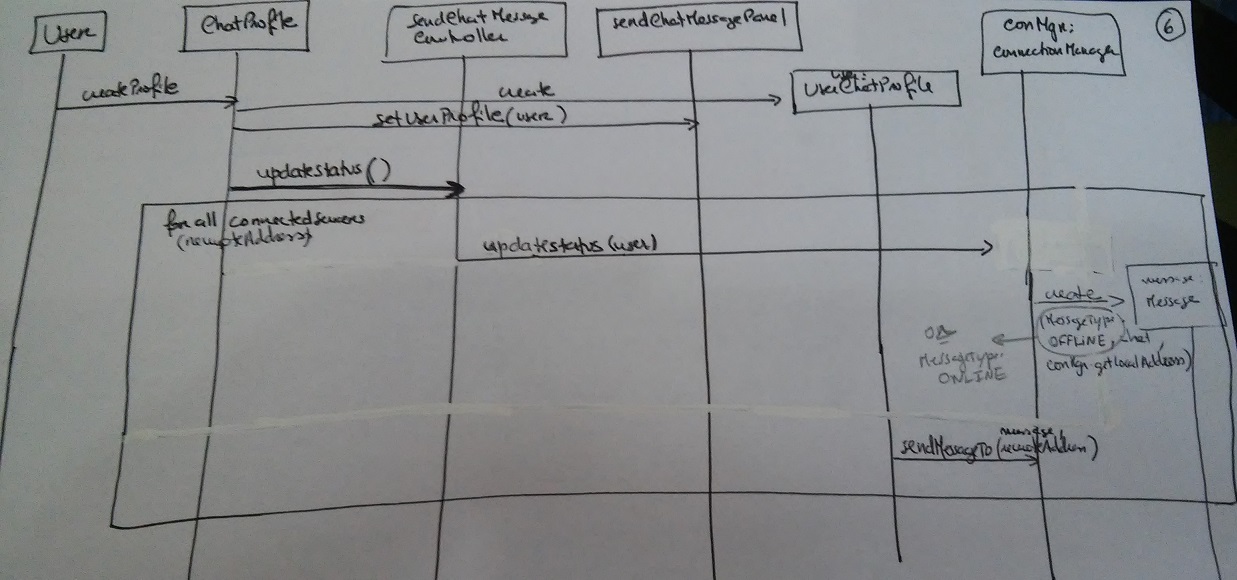 User
ChatProfile
SendChatMessage
Controller
sendChatMessagePanel
conMgr:
connectionManager
6
createProfile
create
UserChatProfile
setUserProfile(user)
updatestatus()
for all connectedServers
(remoteAddress)
updatestatus(user)
create
message:
Message
(MessageType.
OFFLINE, chat,
conMgr.getLocalAddress)
OR
MessageType.
ONLINE
message,
sendMessageTo(remoteAddress)